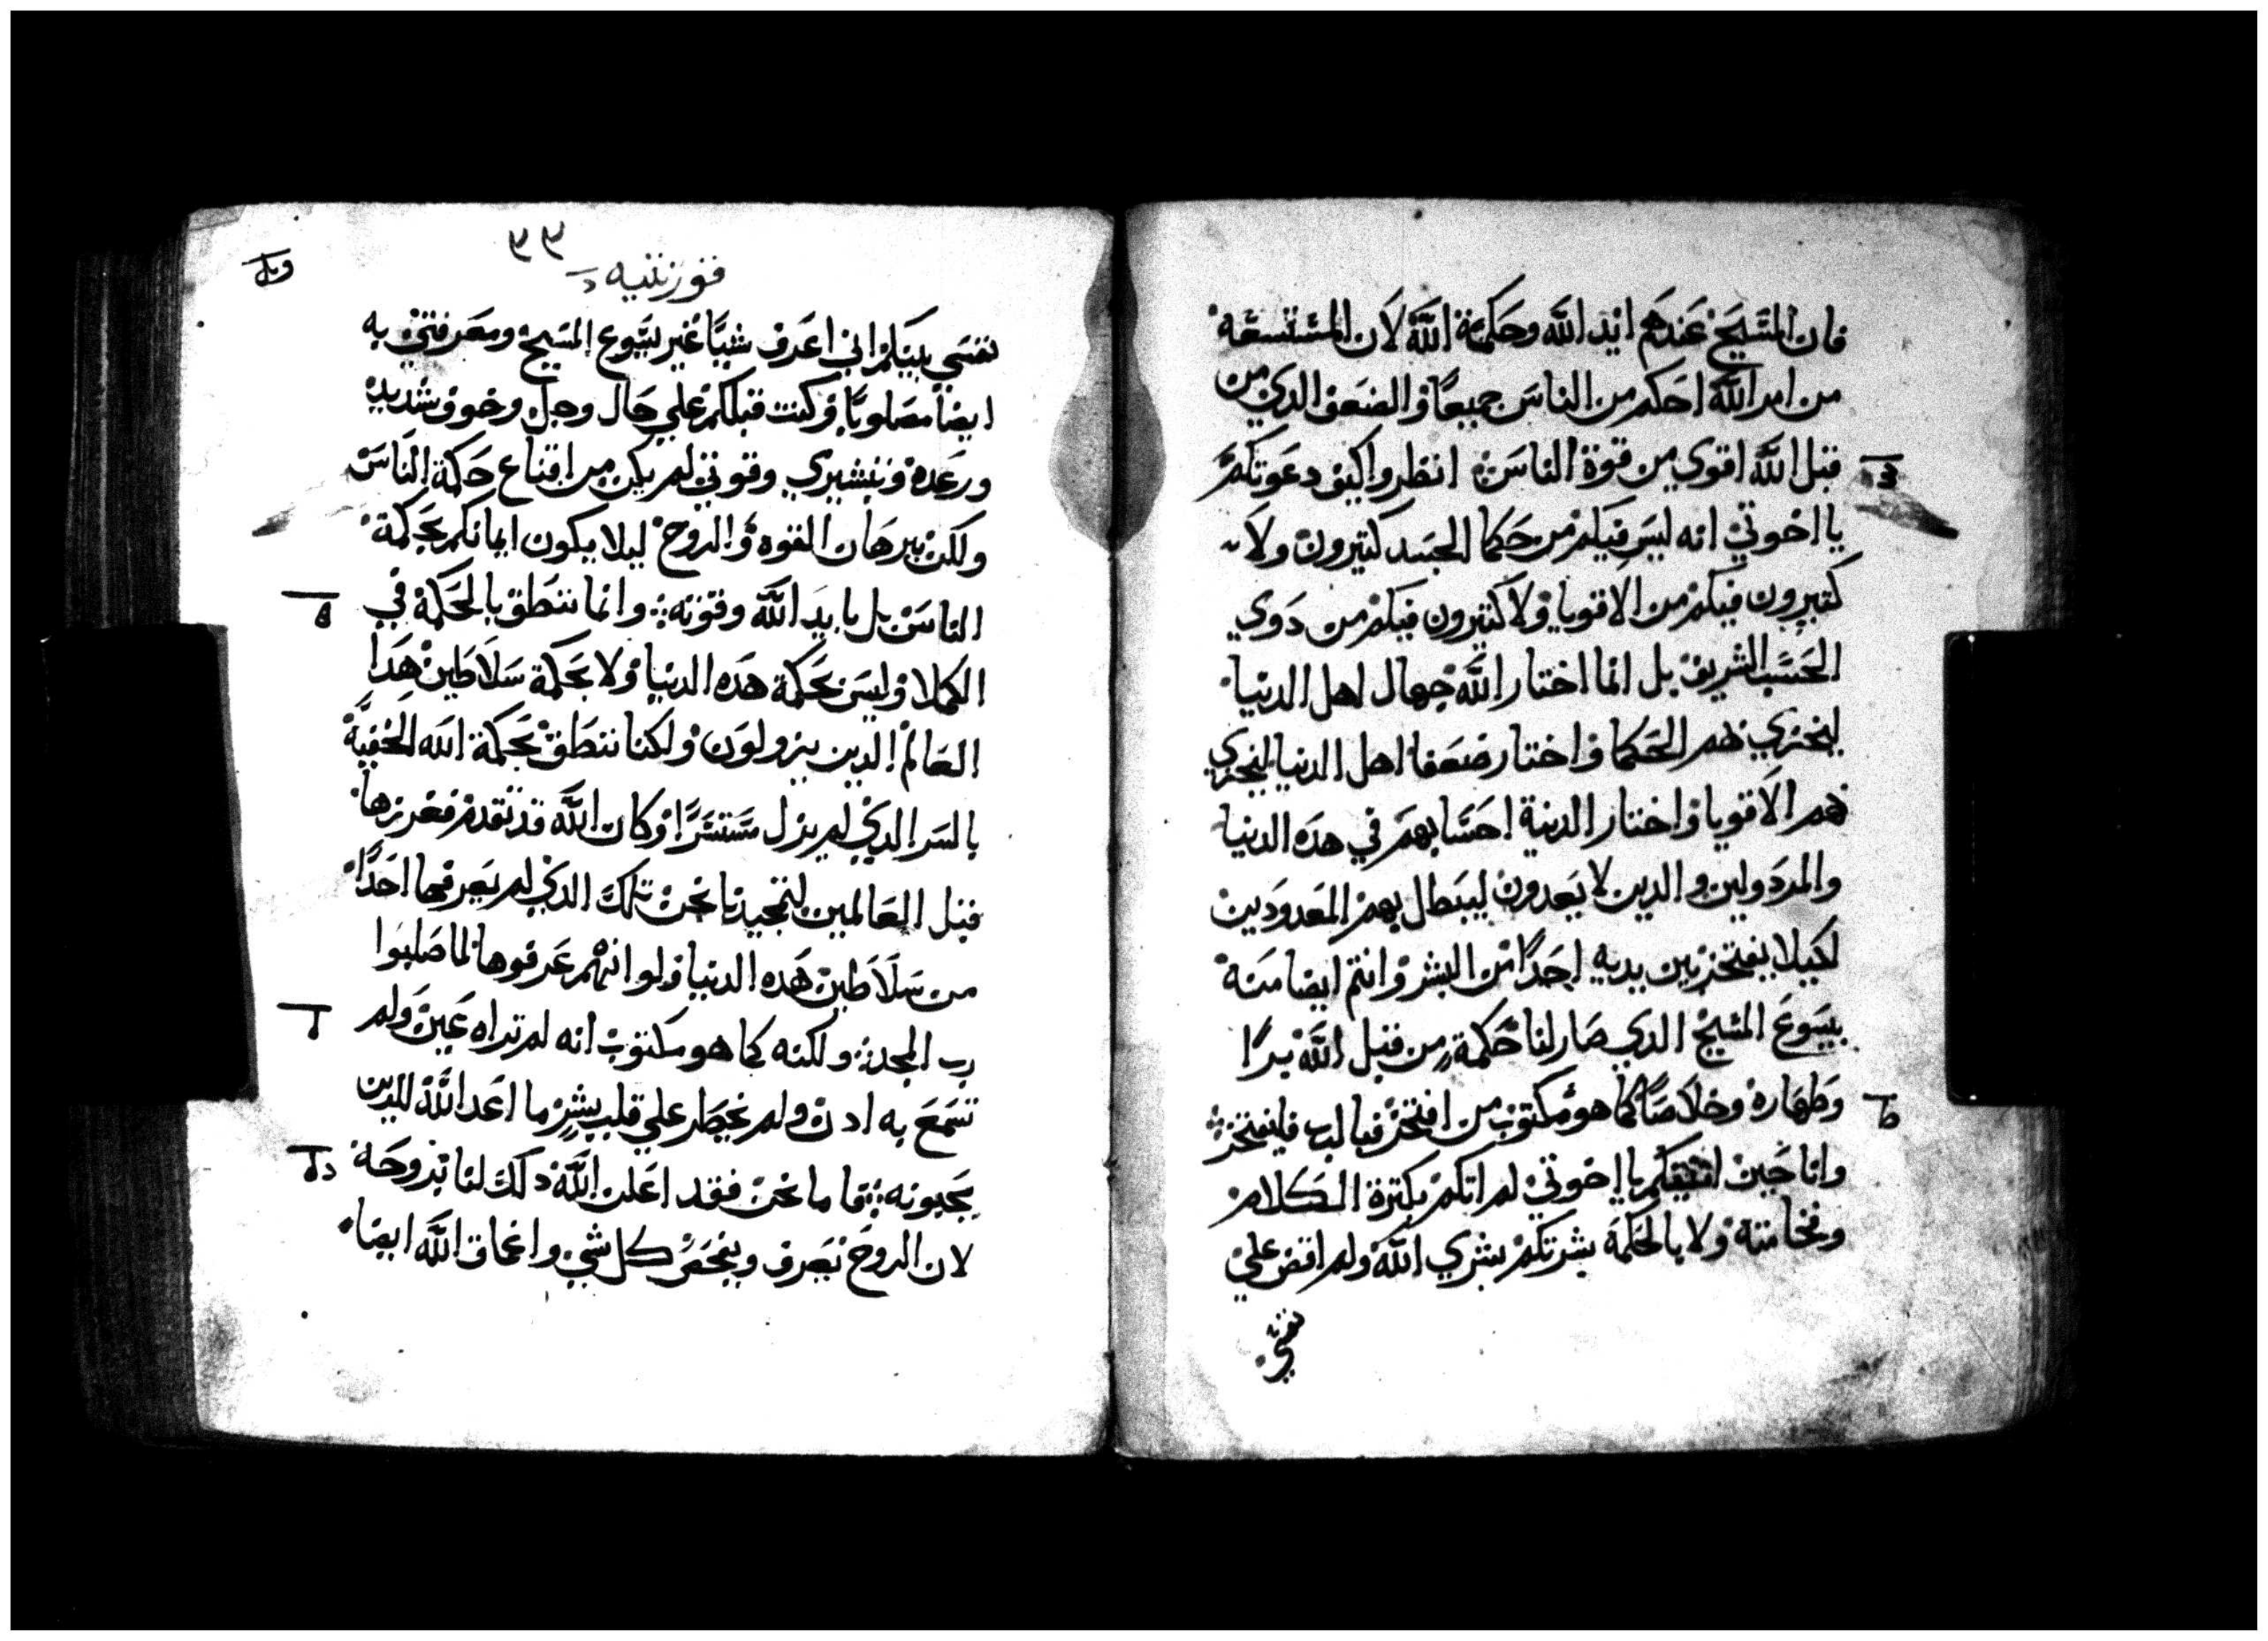 فان المسيح عندهم ايد الله وحكمة الله لان المستسفه
من امر الله احكم من الناس جميعا والضعف الدي من
قبل الله اقوي من قوة الناس انظروا كيف دعوتكم
يا اخوتي انه ليس فيكم من حكما الجسد كتيرون ولا
كتيرون فيكم من الاقويا ولا كتيرون فيكم من دوي
الحسب الشريف بل انما اختار الله جهال اهل الدنيا
ليخزي بهم الحكما واختار ضعفا اهل الدنيا ليخزي
بهم الاقويا واختار الدنية احسابهم في هده الدنيا
والمردولين والدين لا يعدون ليبطل بهم المعدودين
لكيلا يفتخر بين يديه احدا من البشر وانتم ايضا منه
بيسوع المسيح الدي صار لنا حكمة من قبل الله برا
وطهاره وخلاصا كما هو مكتوب من افتخر فبالرب فليفتخر
وانا حين اتيتكم يا اخوتي لم اتكم بكترة الكلام
وفخامته ولا بالحكمة بشرتكم بشري الله ولم اقض علي
نفسي
٩٩
قورنتيه
نفسي بينكم اني اعرف شيا غير يسوع المسيح ومعرفتي به
ايضا مصلوبا وكنت قبلكم علي حال وجل وخوف شديد
ورعده وتبشيري وقوتي لم يكن من اقناع حكمة الناس
ولكن ببرهان القوه والروح ليلا يكون ايمانكم بحكمة
الناس بل بايد الله وقوته وانما ننطق بالحكمة في
الكملا وليس بحكمة هده الدنيا ولا بحكمة سلاطين هدا
العالم الدين يزولون ولكنا ننطق بحكمة الله الخفية
بالسر الدي لم يزل مستترا وكان الله قد تقدم ففرزها
قبل العالمين لتمجيدنا نحن تلك الدي لم يعرفها احدا
من سلاطين هده الدنيا ولو انهم عرفوها لما صلبوا
رب المجد ولكنه كما هو مكتوب انه لم تراه عين ولم
تسمع به ادن ولم يخطر علي قلب بشر ما اعد الله للدين
يحبونه فاما نحن فقد اعلن الله دلك لنا بروحه
لان الروح تعرف ويفحص كل شي واعماق الله ايضا